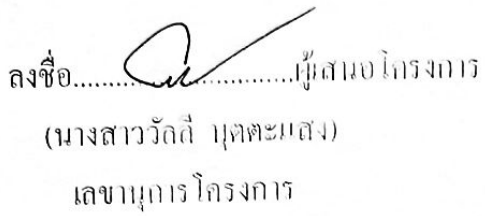 ลงชื่อ...............................ผู้เสนอโครงการ
(นางสาววัลลี บุตตะแสง)
เลขานุการโครงการ